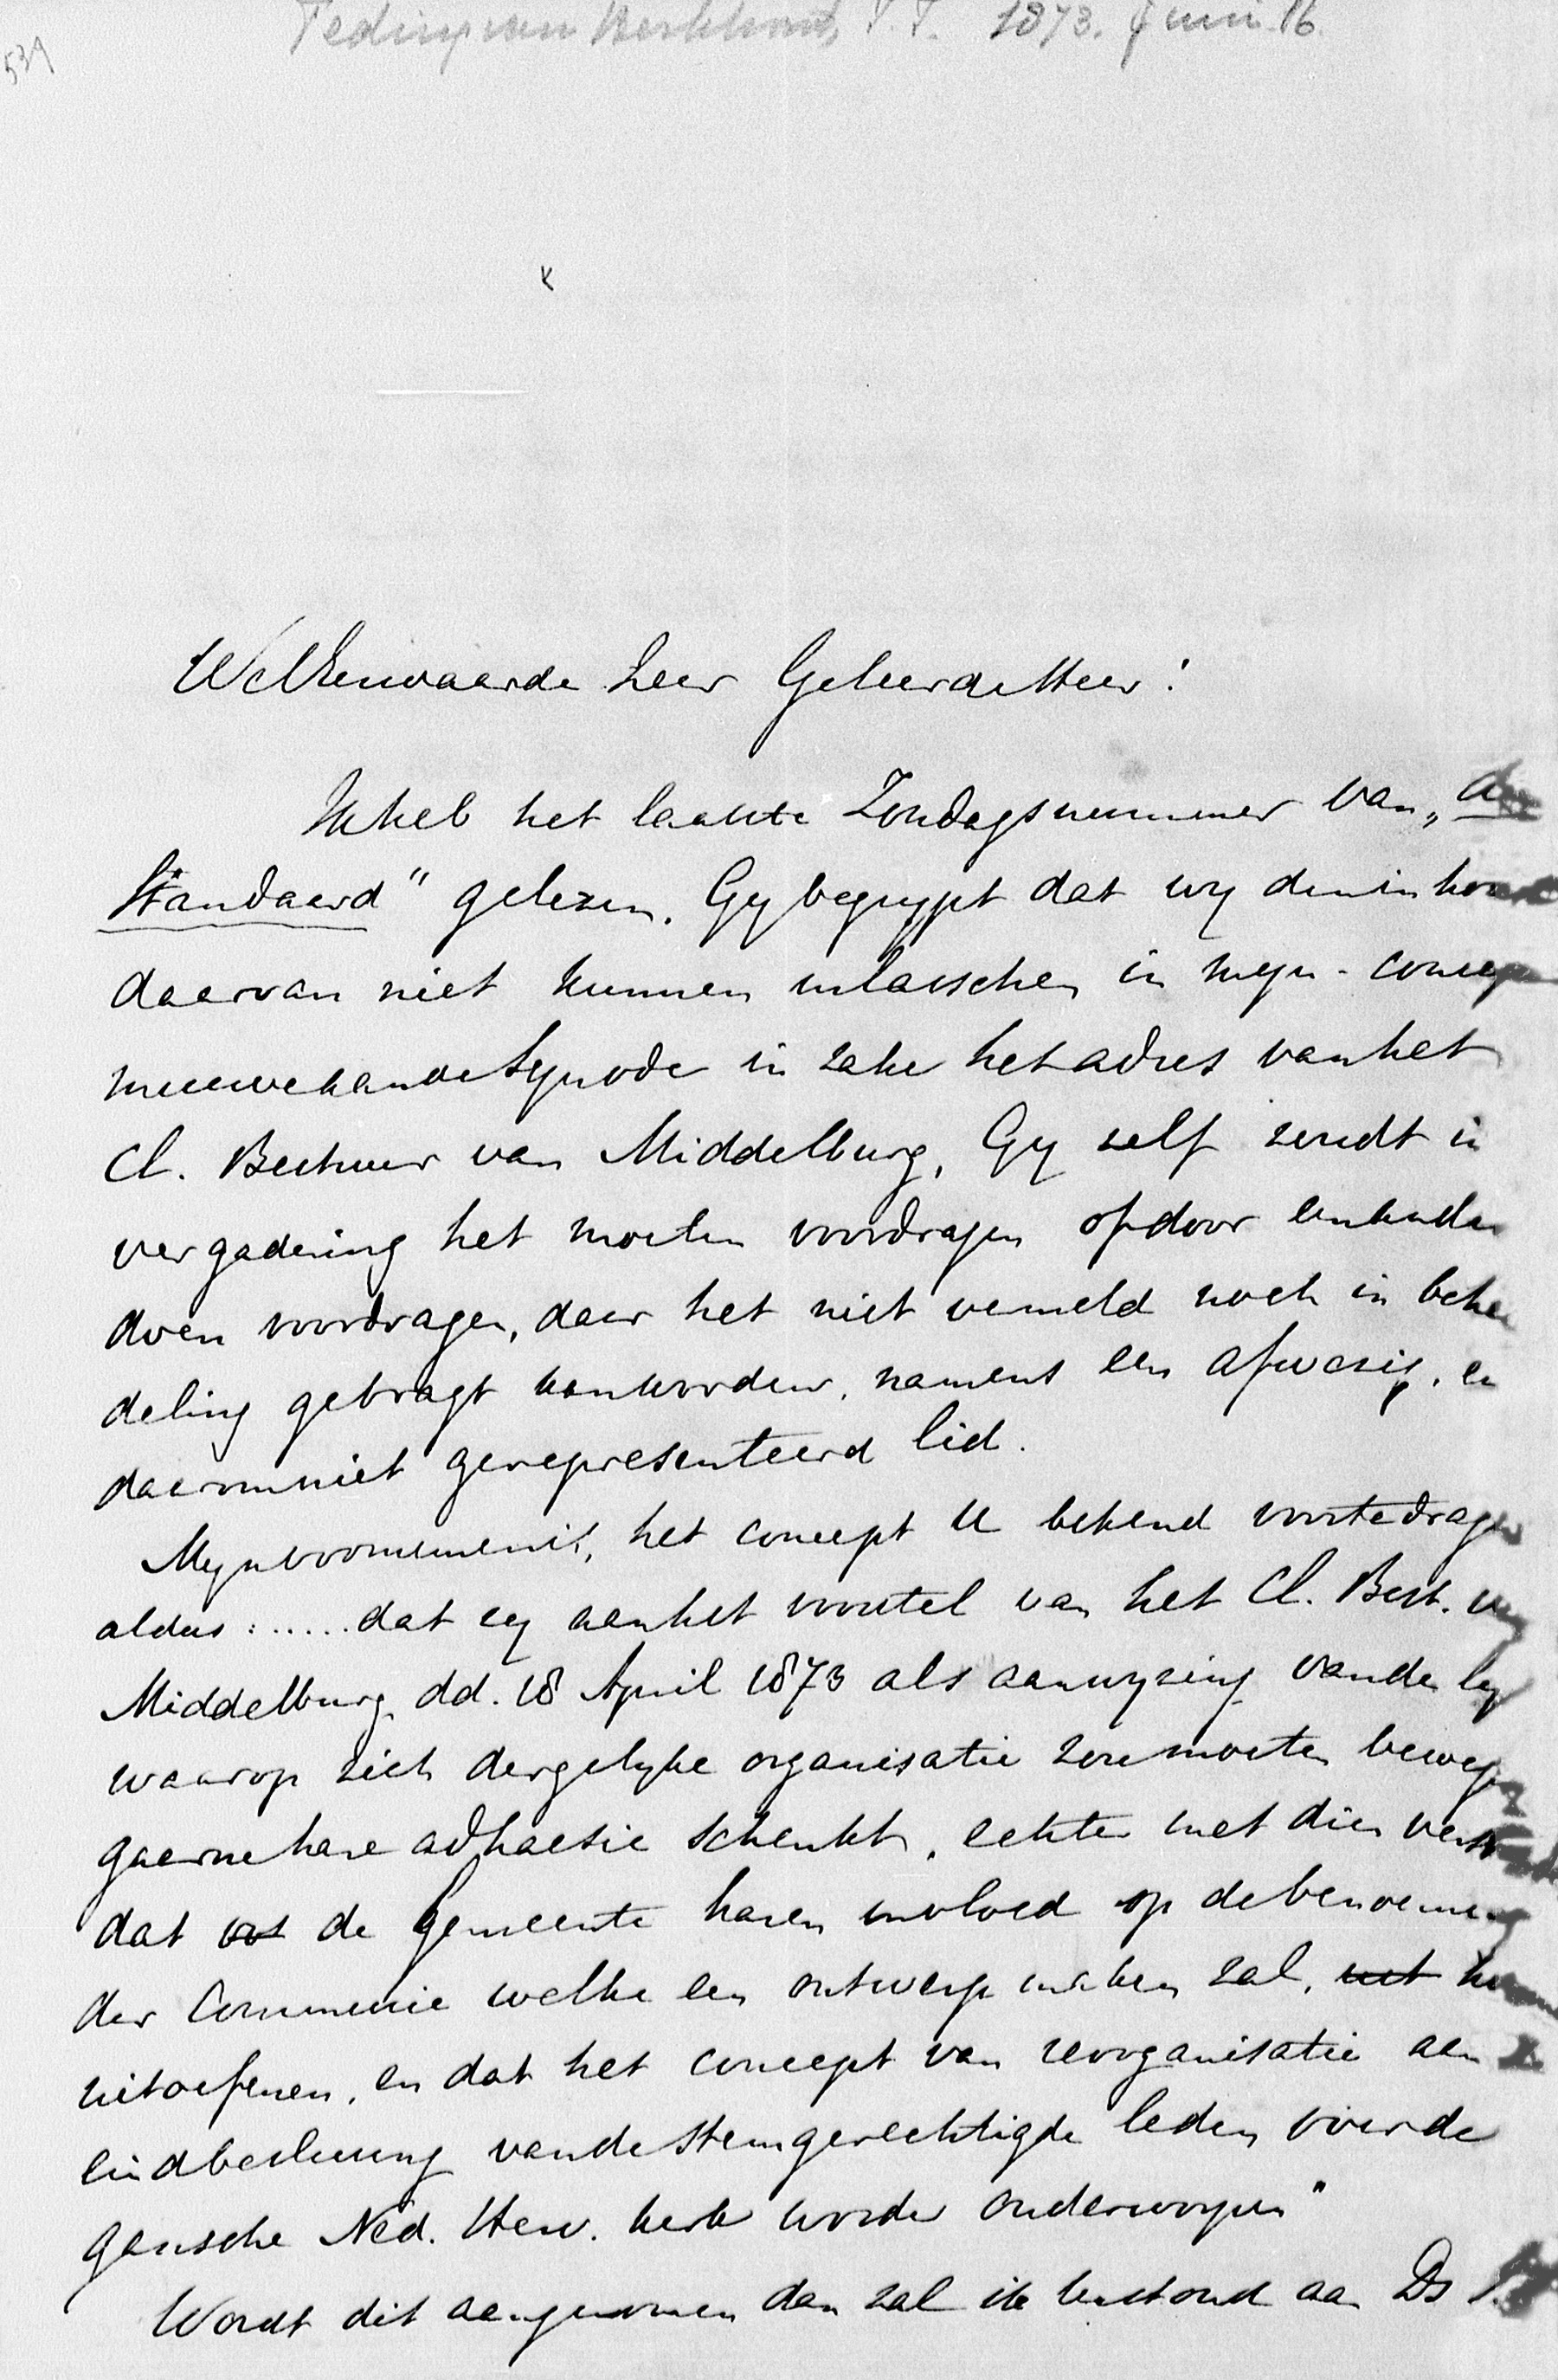 539
Teding van Berkhout, P.J. 1873. Juni 16
WelEerwaarde Zeer Geleerde Heer!
Ik heb het laatste Zondagsnummer van „de
Standaard" gelezen. Gy begrypt dat wy den inhoud
daarvan niet kunnen inlasschen in myn concept
missive aan de Synode in zake het adres van het
Cl. Bestuur van Middelburg. Gy zelf zoudt in
vergadering het moeten voordragen of door een ander
doen voordragen, daar het niet vermeld noch in behan
deling gebragt kan worden, namens een afwezig, en
daarom niet gerepresenteerd lid.
Myn voornemen is, het concept U bekend voor te dragen
aldus: ..... dat zy aan het voorstel van het Cl. Best. van
Middelburg dd. 18 April 1873 als aanwyzing van de lyn
waarop zich dergelyke organisatie zou moeten bewegen
gaerne hare adhaesie schenkt, echter met dien verstande
dat de Gemeente haren invloed op de benoeming
der Commissie welke een ontwerp maken zal,
uitoefenen, en dat het concept van reorganisatie aan
eindbeslissing van de stemgerechtigde leden voor de
gansche Ned. Herv. kerk worde onderworpen"
Wordt dit aangenomen dan zal ik terstond aan Ds